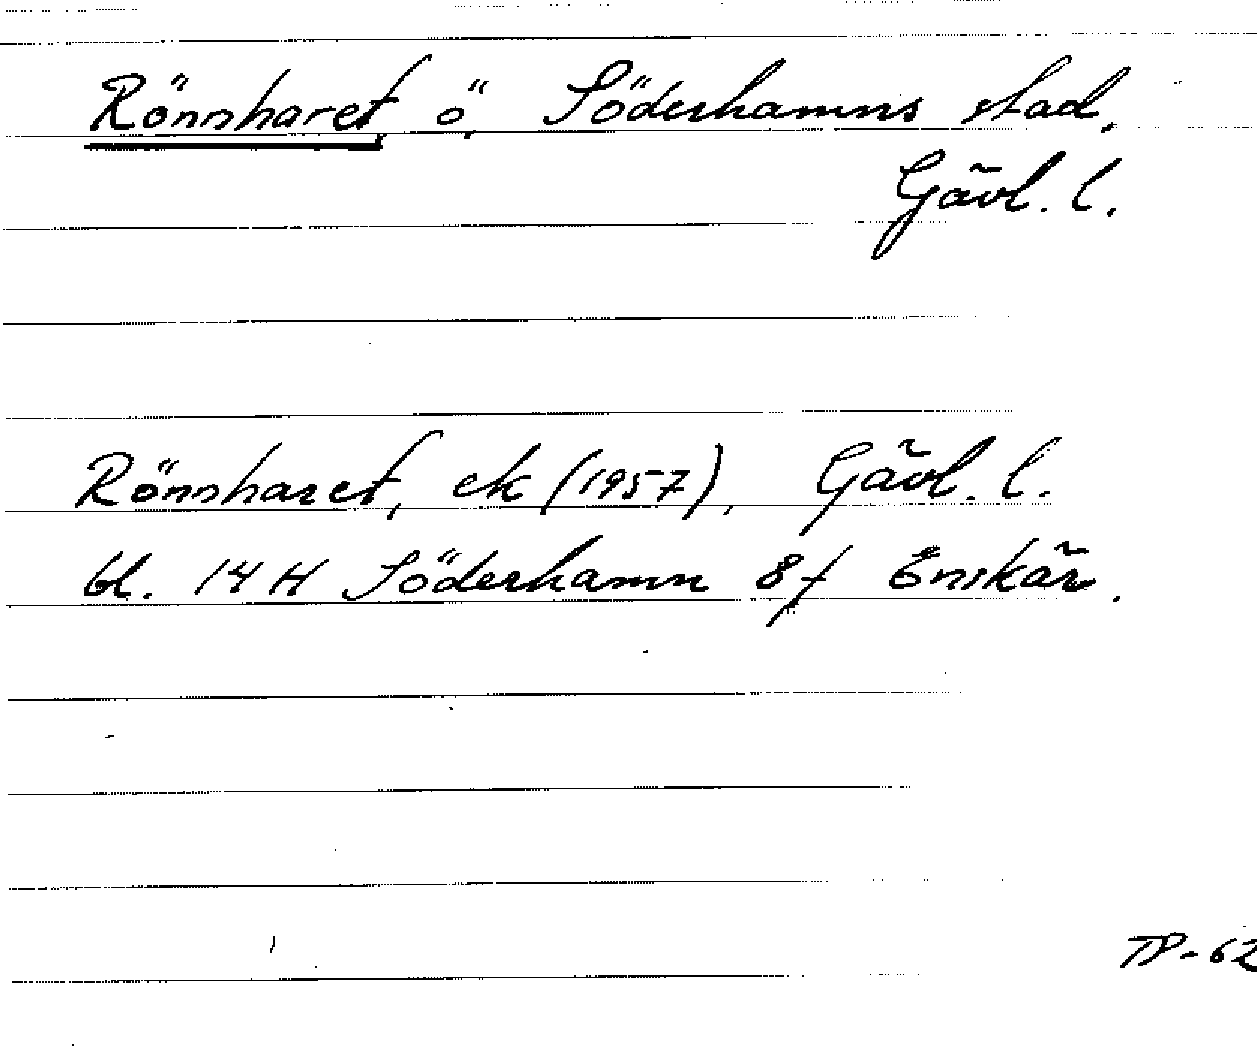 Rönnharet, ö, Söderhamns stad,
Gävl. l.
Rönnharet, ek (1957), Gävl. l.
bl. 14 H Söderhamn 8f Enskär.
TP-62